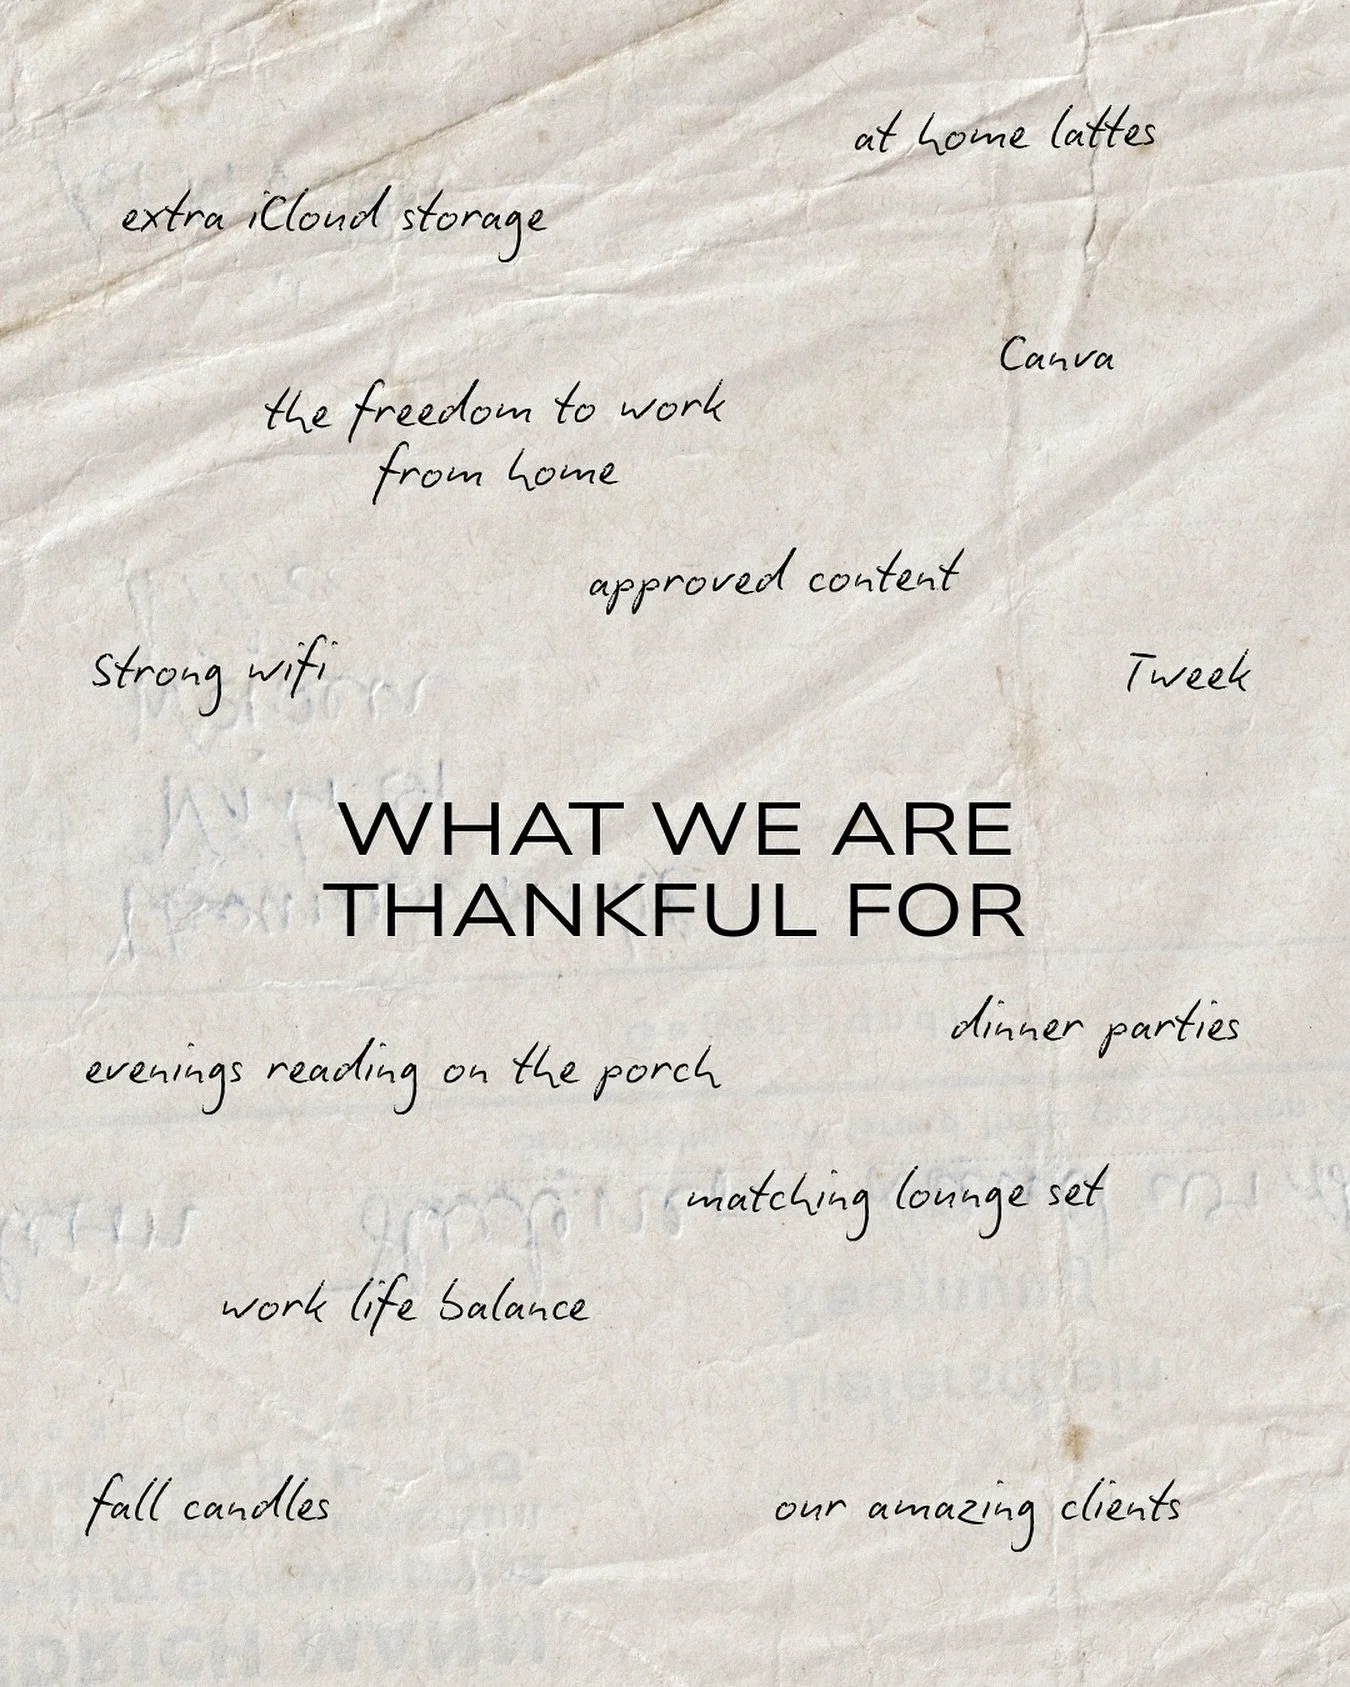 at home lattes
extra iCloud storage
Canva
the freedom to work
from home
approved content
Strong wifi
Tweek
WHAT WE ARE
THANKFUL FOR
dinner parties
evenings reading on the porch
matching lounge set
work life balance
fall candles
our amazing clients